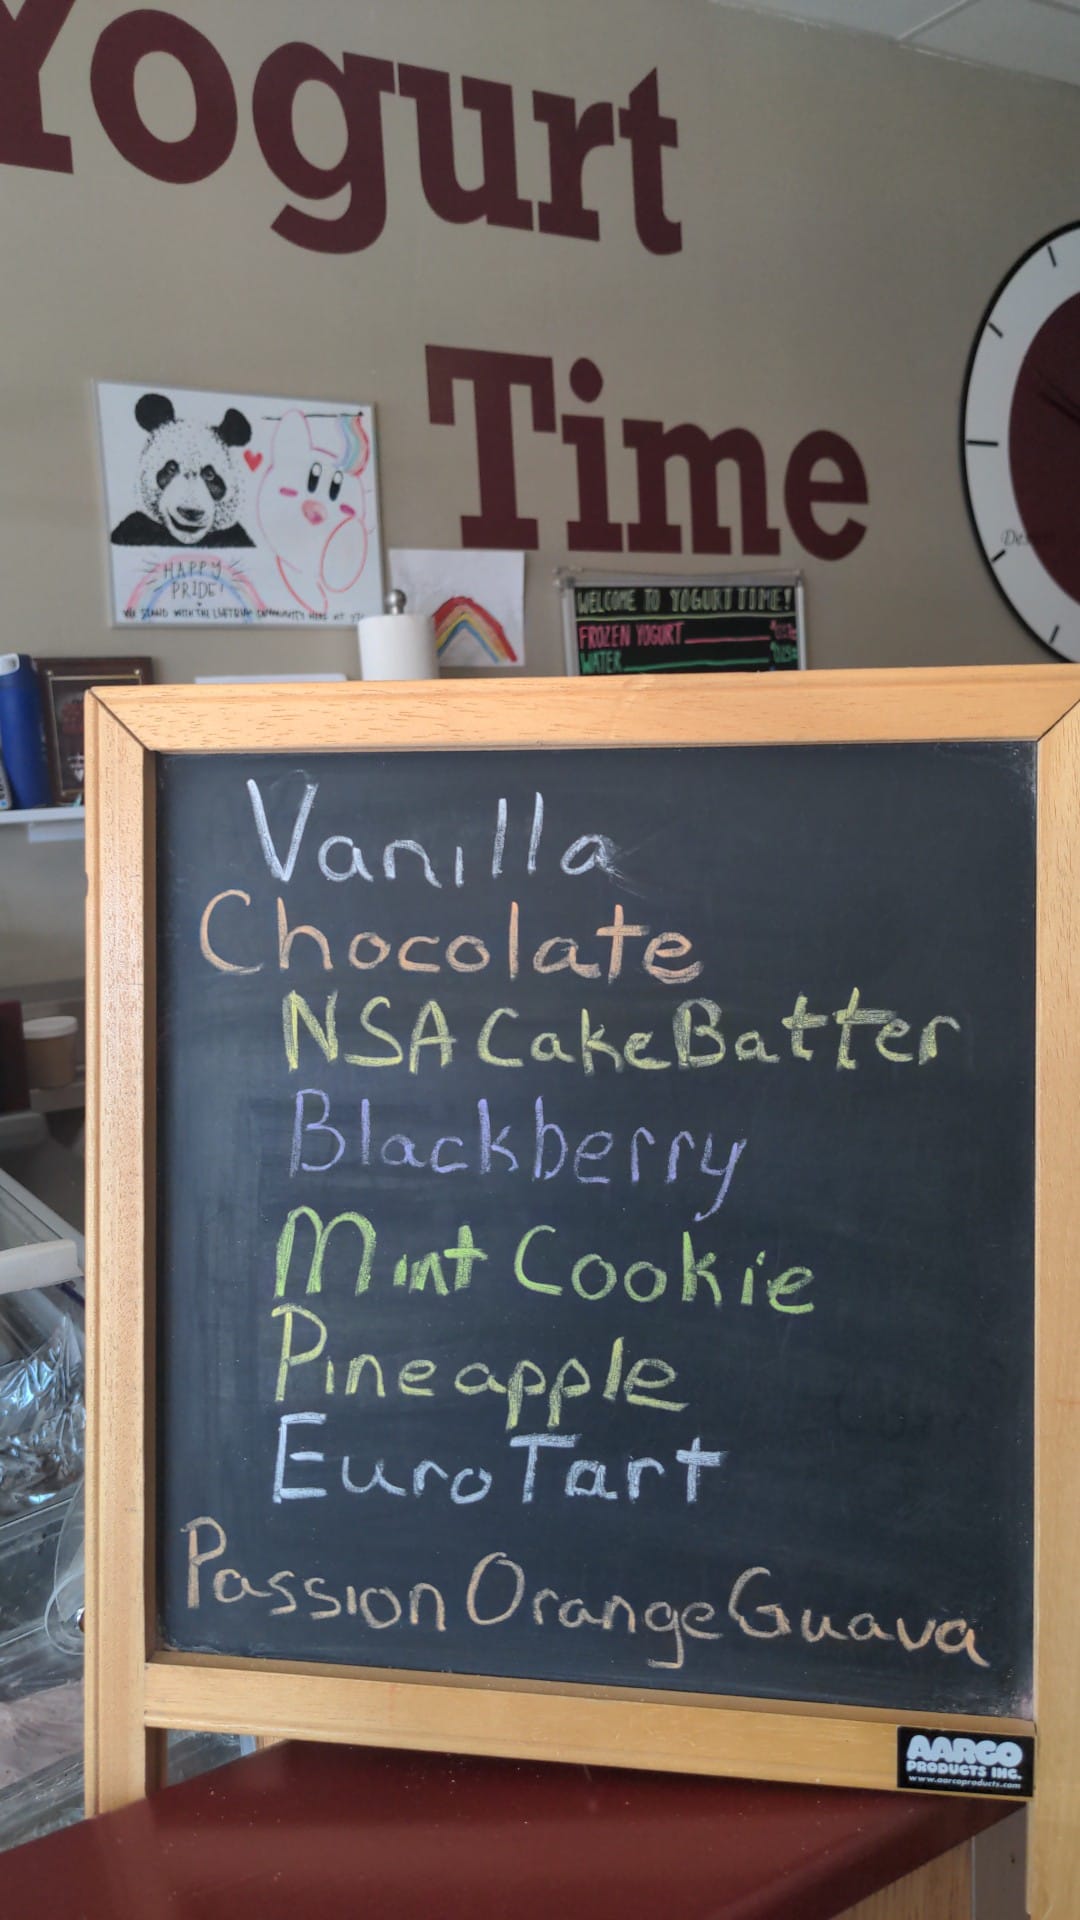 Yogurt
Time
HAPPY
PRIDE!
WE STAND WITH THE LGBTQIA+ COMMUNITY HERE AT
WELCOME TO YOGURT TIME!
FROZEN YOGURT
WATER
Vanilla
Chocolate
NSA Cake Batter
Blackberry
Mint Cookie
Pineapple
Euro Tart
Passion Orange Guava
AARCO
PRODUCTS INC.
www.aarcoproducts.com